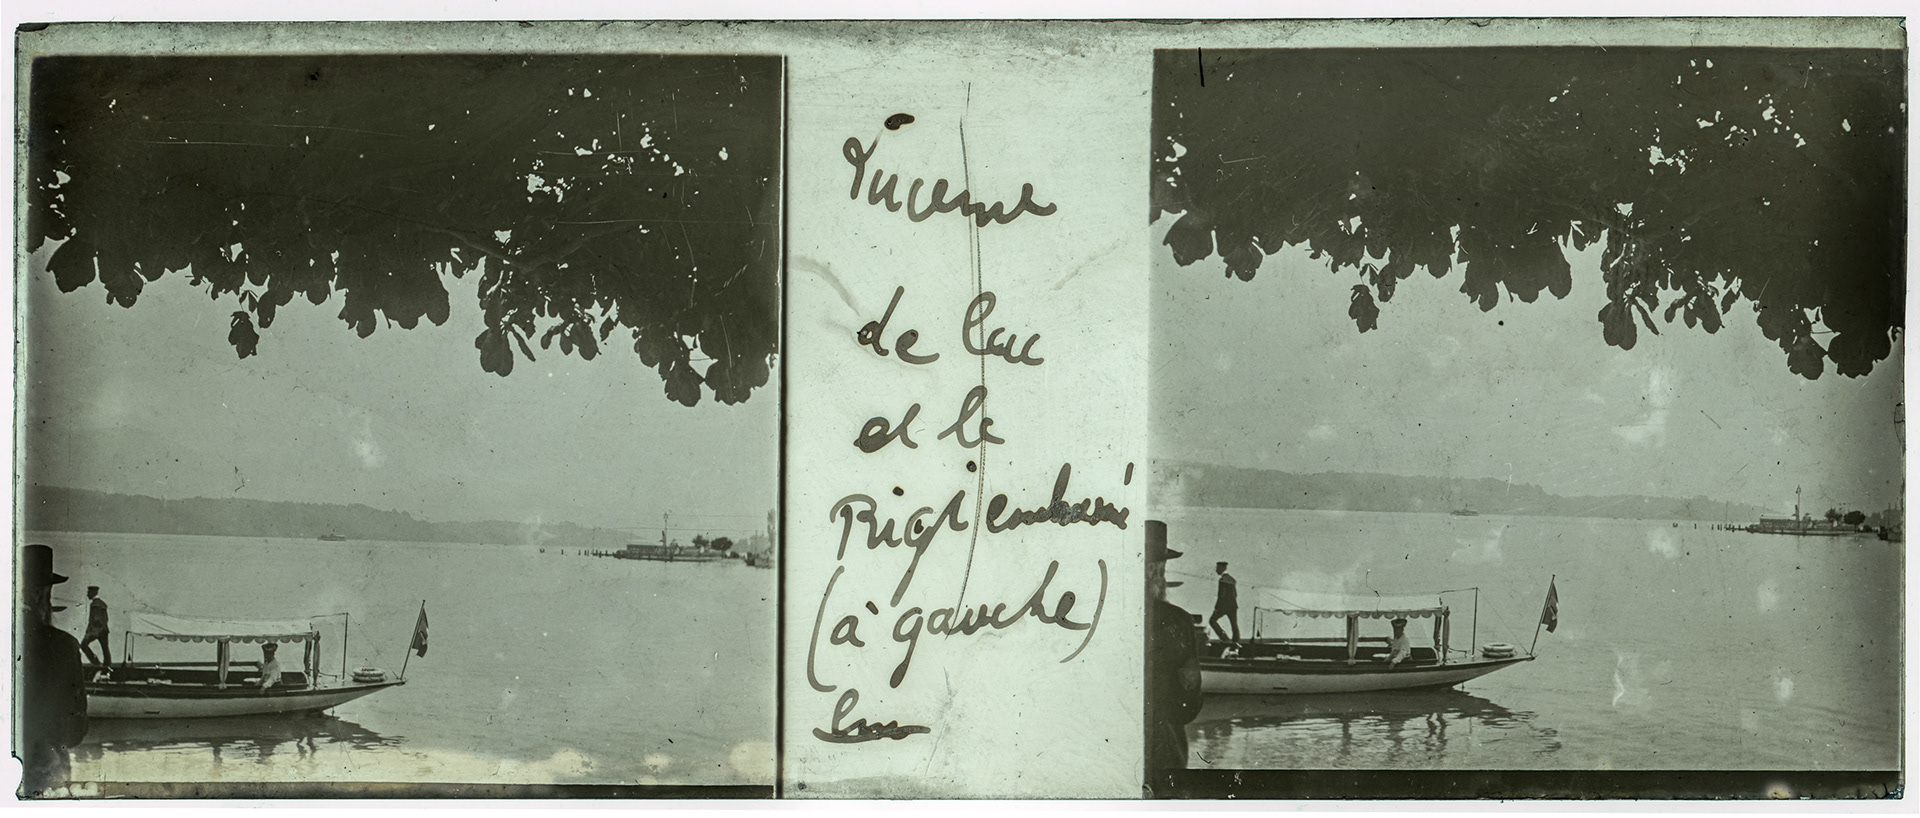 Lucerne
de lac
et le
Righi embrumé
(à gauche)